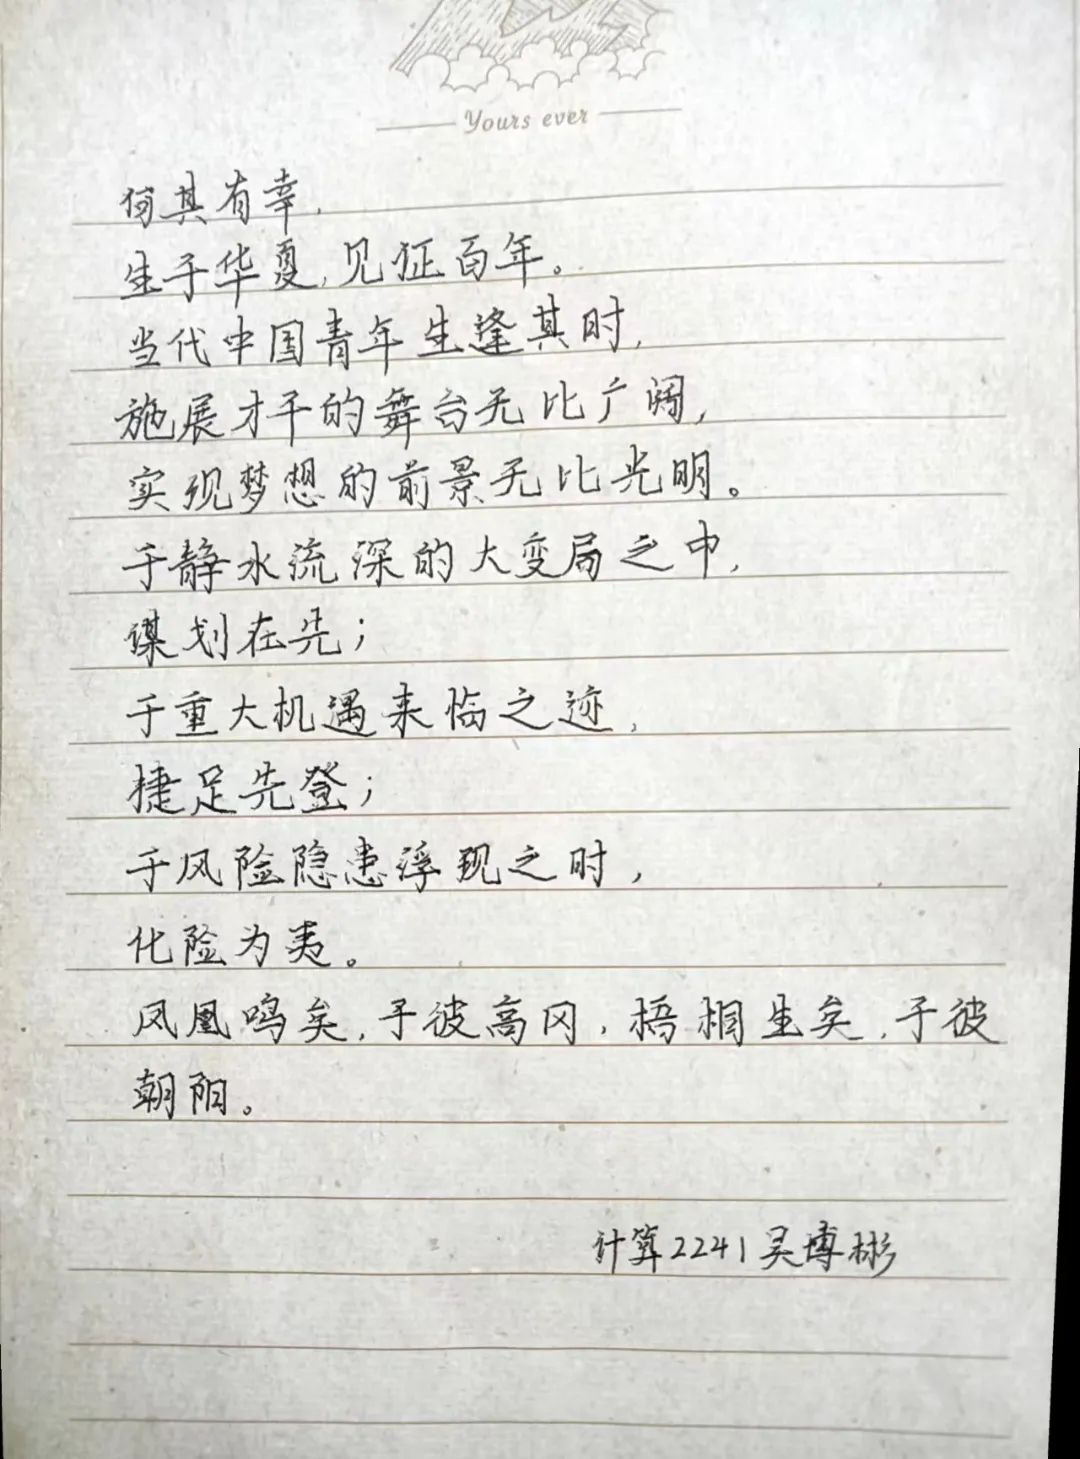 Yours ever
何其有幸,
生于华夏,见征百年。
当代中国青年生逢其时,
施展才干的舞台无比广阔,
实现梦想的前景无比光明。
于静水流深的大变局之中,
谋划在先;
于重大机遇来临之迹,
捷足先登;
于风险隐患浮现之时,
化险为夷。
凤凰鸣矣,于彼高冈,梧桐生矣,于彼
朝阳。
计算2241吴博彬